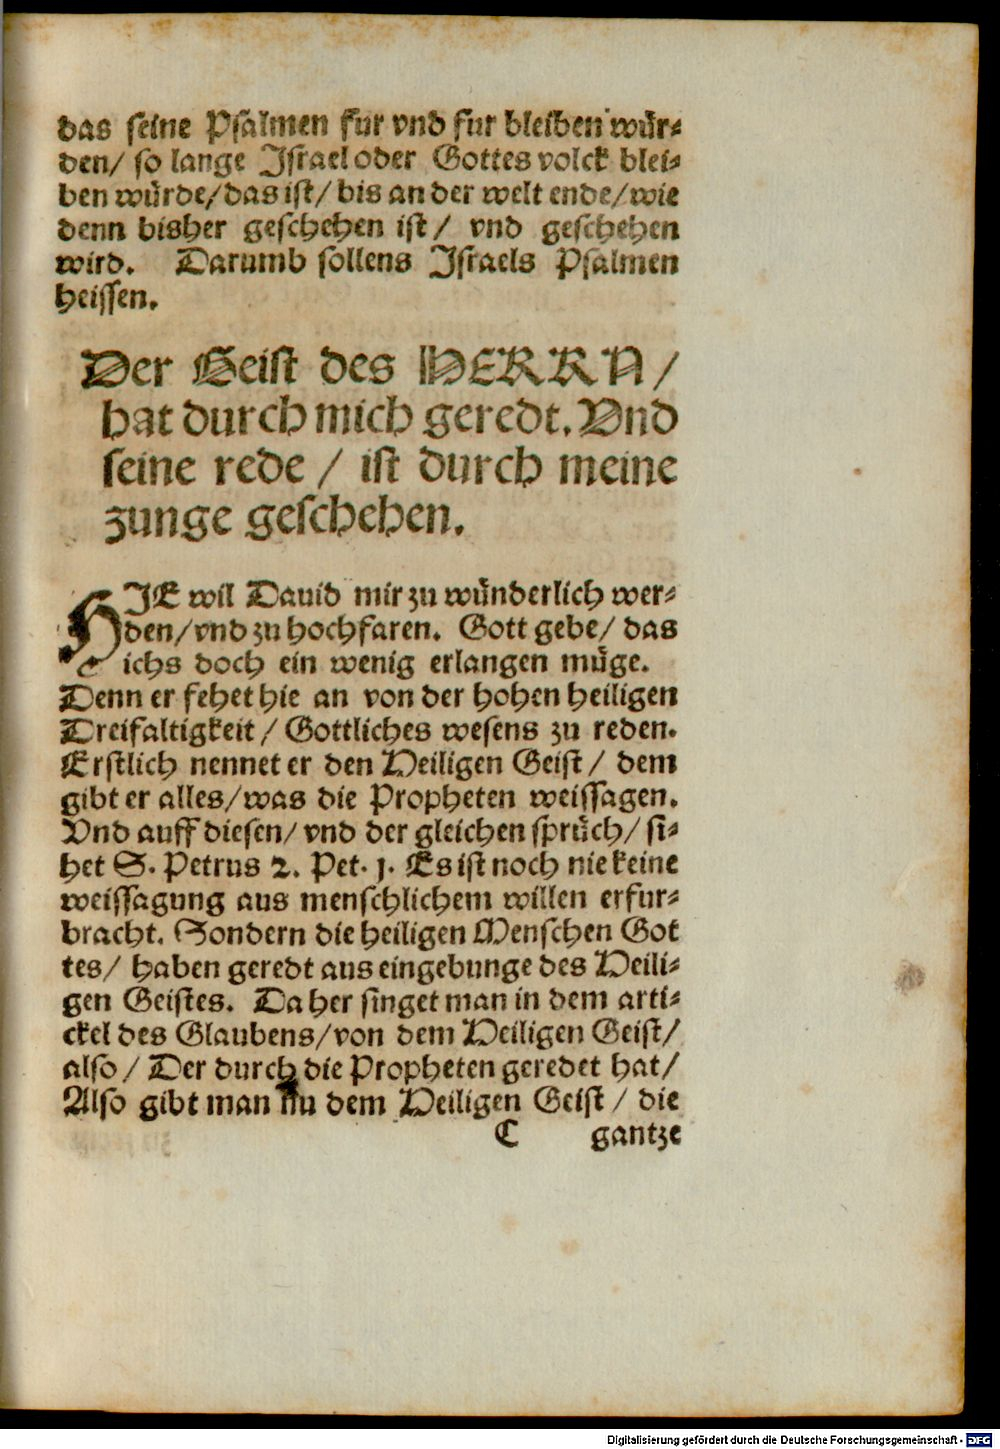 das seine Psalmen fur vnd fur bleiben wür-
den/ so lange Israel oder Gottes volck blei-
ben würde/das ist/ bis an der welt ende/wie
denn bisher geschehen ist/ vnd geschehen
wird. Darumb sollens Israels Psalmen
heissen.
Der Geist des HERRN/
hat durch mich geredt. Vnd
seine rede / ist durch meine
zunge geschehen.
HIE wil Dauid mir zu wünderlich wer-
den/vnd zu hochfaren. Gott gebe/ das
ichs doch ein wenig erlangen müge.
Denn er fehet hie an von der hohen heiligen
Dreifaltigkeit/ Gottliches wesens zu reden.
Erstlich nennet er den Heiligen Geist/ dem
gibt er alles/was die Propheten weissagen.
Vnd auff diesen/vnd der gleichen sprüch/ si-
het S. Petrus 2. Pet. j. Es ist noch nie keine
weissagung aus menschlichem willen erfur-
bracht. Sondern die heiligen Menschen Got
tes/ haben geredt aus eingebunge des Heili-
gen Geistes. Da her singet man in dem arti-
ckel des Glaubens/von dem Heiligen Geist/
also/ Der durch die Propheten geredet hat/
Also gibt man nu dem Heiligen Geist/ die
C gantze
Digitalisierung gefördert durch die Deutsche Forschungsgemeinschaft - DFG